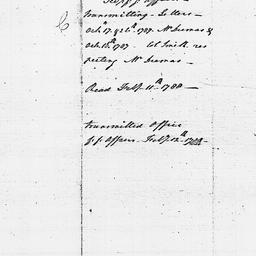 transmitting Letters —
Octr. 17. & 26th. 1787. Mr Dumas &
Octr. 18th 1787. Col Smith res
pecting Mr Dumas —
Read Feby. 11th. 1788 —
transmitted Office
f. f. Affairs Feby. 12th. 1788